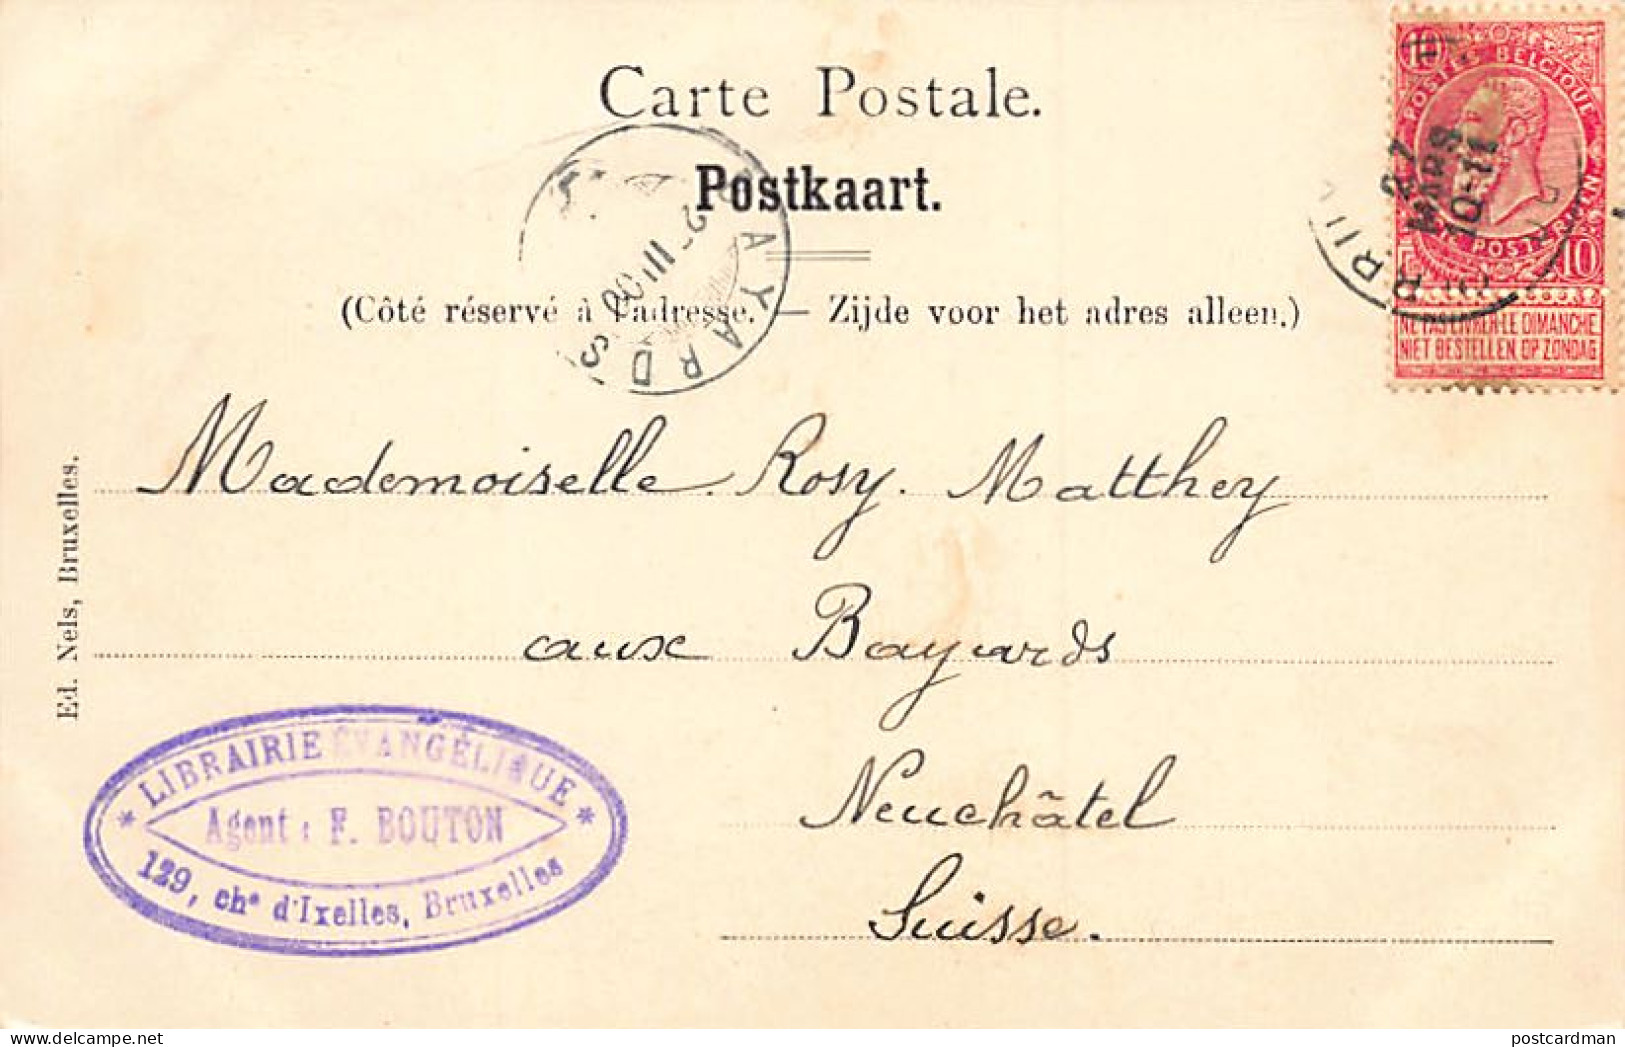 Carte Postale.
Postkaart.
(Côté réservé à l'adresse. — Zijde voor het adres alleen.)
BAYARDS
POSTES BELGIQUE
10 10
NE PAS LIVRER LE DIMANCHE
NIET BESTELLEN OP ZONDAG
27
MARS
10-11
Mademoiselle. Rosy. Matthey
aux Bayards
Neuchâtel
Suisse.
Ed. Nels, Bruxelles.
* LIBRAIRIE ÉVANGÉLIQUE *
Agent : F. BOUTON
129, chᵉ d'Ixelles, Bruxelles
postcardman